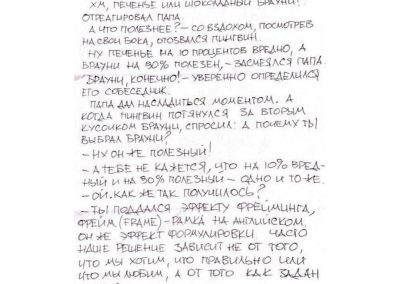 ХМ, ПЕЧЕНЬЕ ИЛИ ШОКОЛАДНЫЙ БРАУНИ? -
ОТРЕАГИРОВАЛ ПАПА.
А ЧТО ПОЛЕЗНЕЕ? - СО ВЗДОХОМ, ПОСМОТРЕВ
НА СВОИ БОКА, ОТОЗВАЛСЯ ПИНГВИН.
НУ ПЕЧЕНЬЕ НА 10 ПРОЦЕНТОВ ВРЕДНО, А
БРАУНИ НА 90% ПОЛЕЗЕН, - ЗАСМЕЯЛСЯ ПАПА.
БРАУНИ, КОНЕЧНО! - УВЕРЕННО ОПРЕДЕЛИЛСЯ
ЕГО СОБЕСЕДНИК.
ПАПА ДАЛ НАСЛАДИТЬСЯ МОМЕНТОМ. А
КОГДА ПИНГВИН ПОТЯНУЛСЯ ЗА ВТОРЫМ
КУСОЧКОМ БРАУНИ, СПРОСИЛ: А ПОЧЕМУ ТЫ
ВЫБРАЛ БРАУНИ?
- НУ ОН ЖЕ ПОЛЕЗНЫЙ!
- А ТЕБЕ НЕ КАЖЕТСЯ, ЧТО НА 10% ВРЕД-
НЫЙ И НА 90% ПОЛЕЗНЫЙ - ОДНО И ТО ЖЕ.
- ОЙ. КАК ЖЕ ТАК ПОЛУЧИЛОСЬ?
- ТЫ ПОДДАЛСЯ ЭФФЕКТУ ФРЕЙМИНГА,
ФРЕЙМ (FRAME) - РАМКА НА АНГЛИЙСКОМ.
ОН ЖЕ ЭФФЕКТ ФОРМУЛИРОВКИ. ЧАСТО
НАШЕ РЕШЕНИЕ ЗАВИСИТ НЕ ОТ ТОГО,
ЧТО МЫ ХОТИМ, ЧТО ПРАВИЛЬНО ИЛИ
ЧТО МЫ ЛЮБИМ, А ОТ ТОГО КАК ЗАДАН